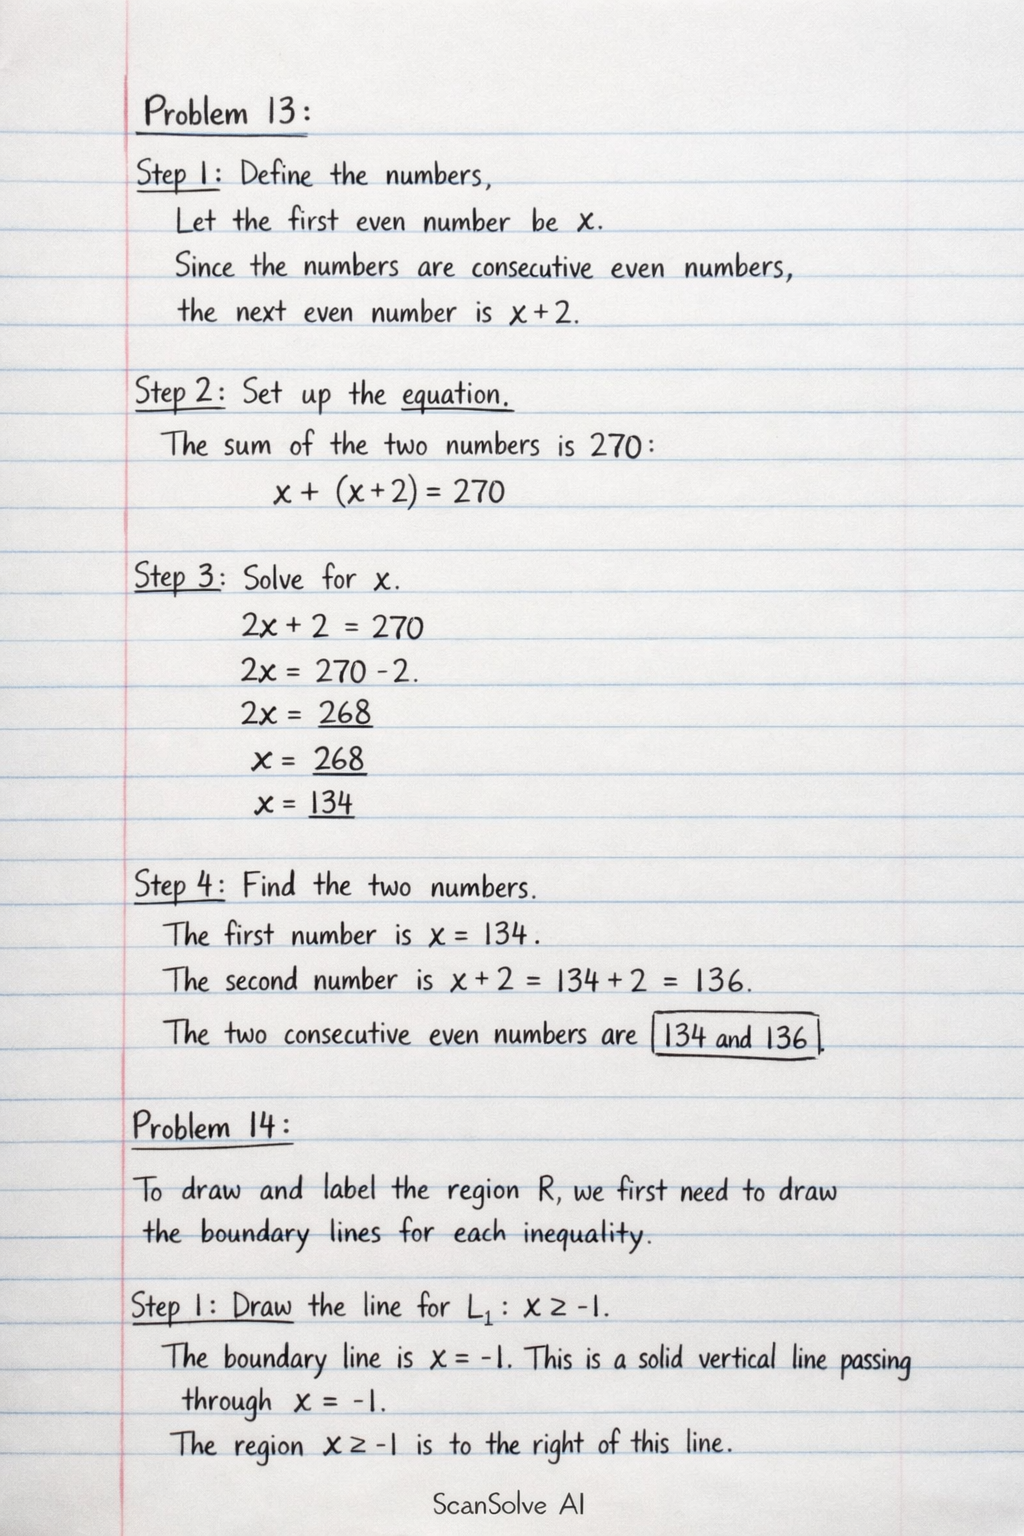 Problem 13:
Step 1: Define the numbers,
Let the first even number be x.
Since the numbers are consecutive even numbers,
the next even number is x + 2.
Step 2: Set up the equation.
The sum of the two numbers is 270:
x + (x + 2) = 270
Step 3: Solve for x.
2x + 2 = 270
2x = 270 - 2.
2x = 268
x = 268
x = 134
Step 4: Find the two numbers.
The first number is x = 134.
The second number is x + 2 = 134 + 2 = 136.
The two consecutive even numbers are 134 and 136.
Problem 14:
To draw and label the region R, we first need to draw
the boundary lines for each inequality.
Step 1: Draw the line for L₁: x ≥ -1.
The boundary line is x = -1. This is a solid vertical line passing
through x = -1.
The region x ≥ -1 is to the right of this line.
ScanSolve AI